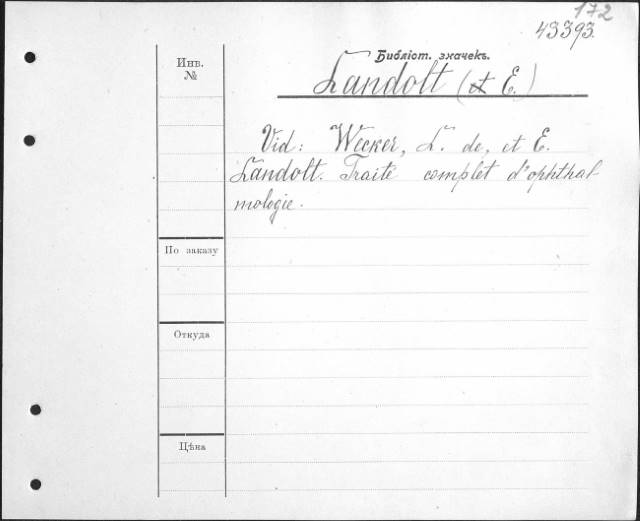 172
43393.
Инв.
№
Библіот. значекъ.
Landolt (et E.)
Vid: Wecker, L. de, et E.
Landolt. Traité complet d'ophthal-
mologie.
По заказу
Откуда
Цѣна